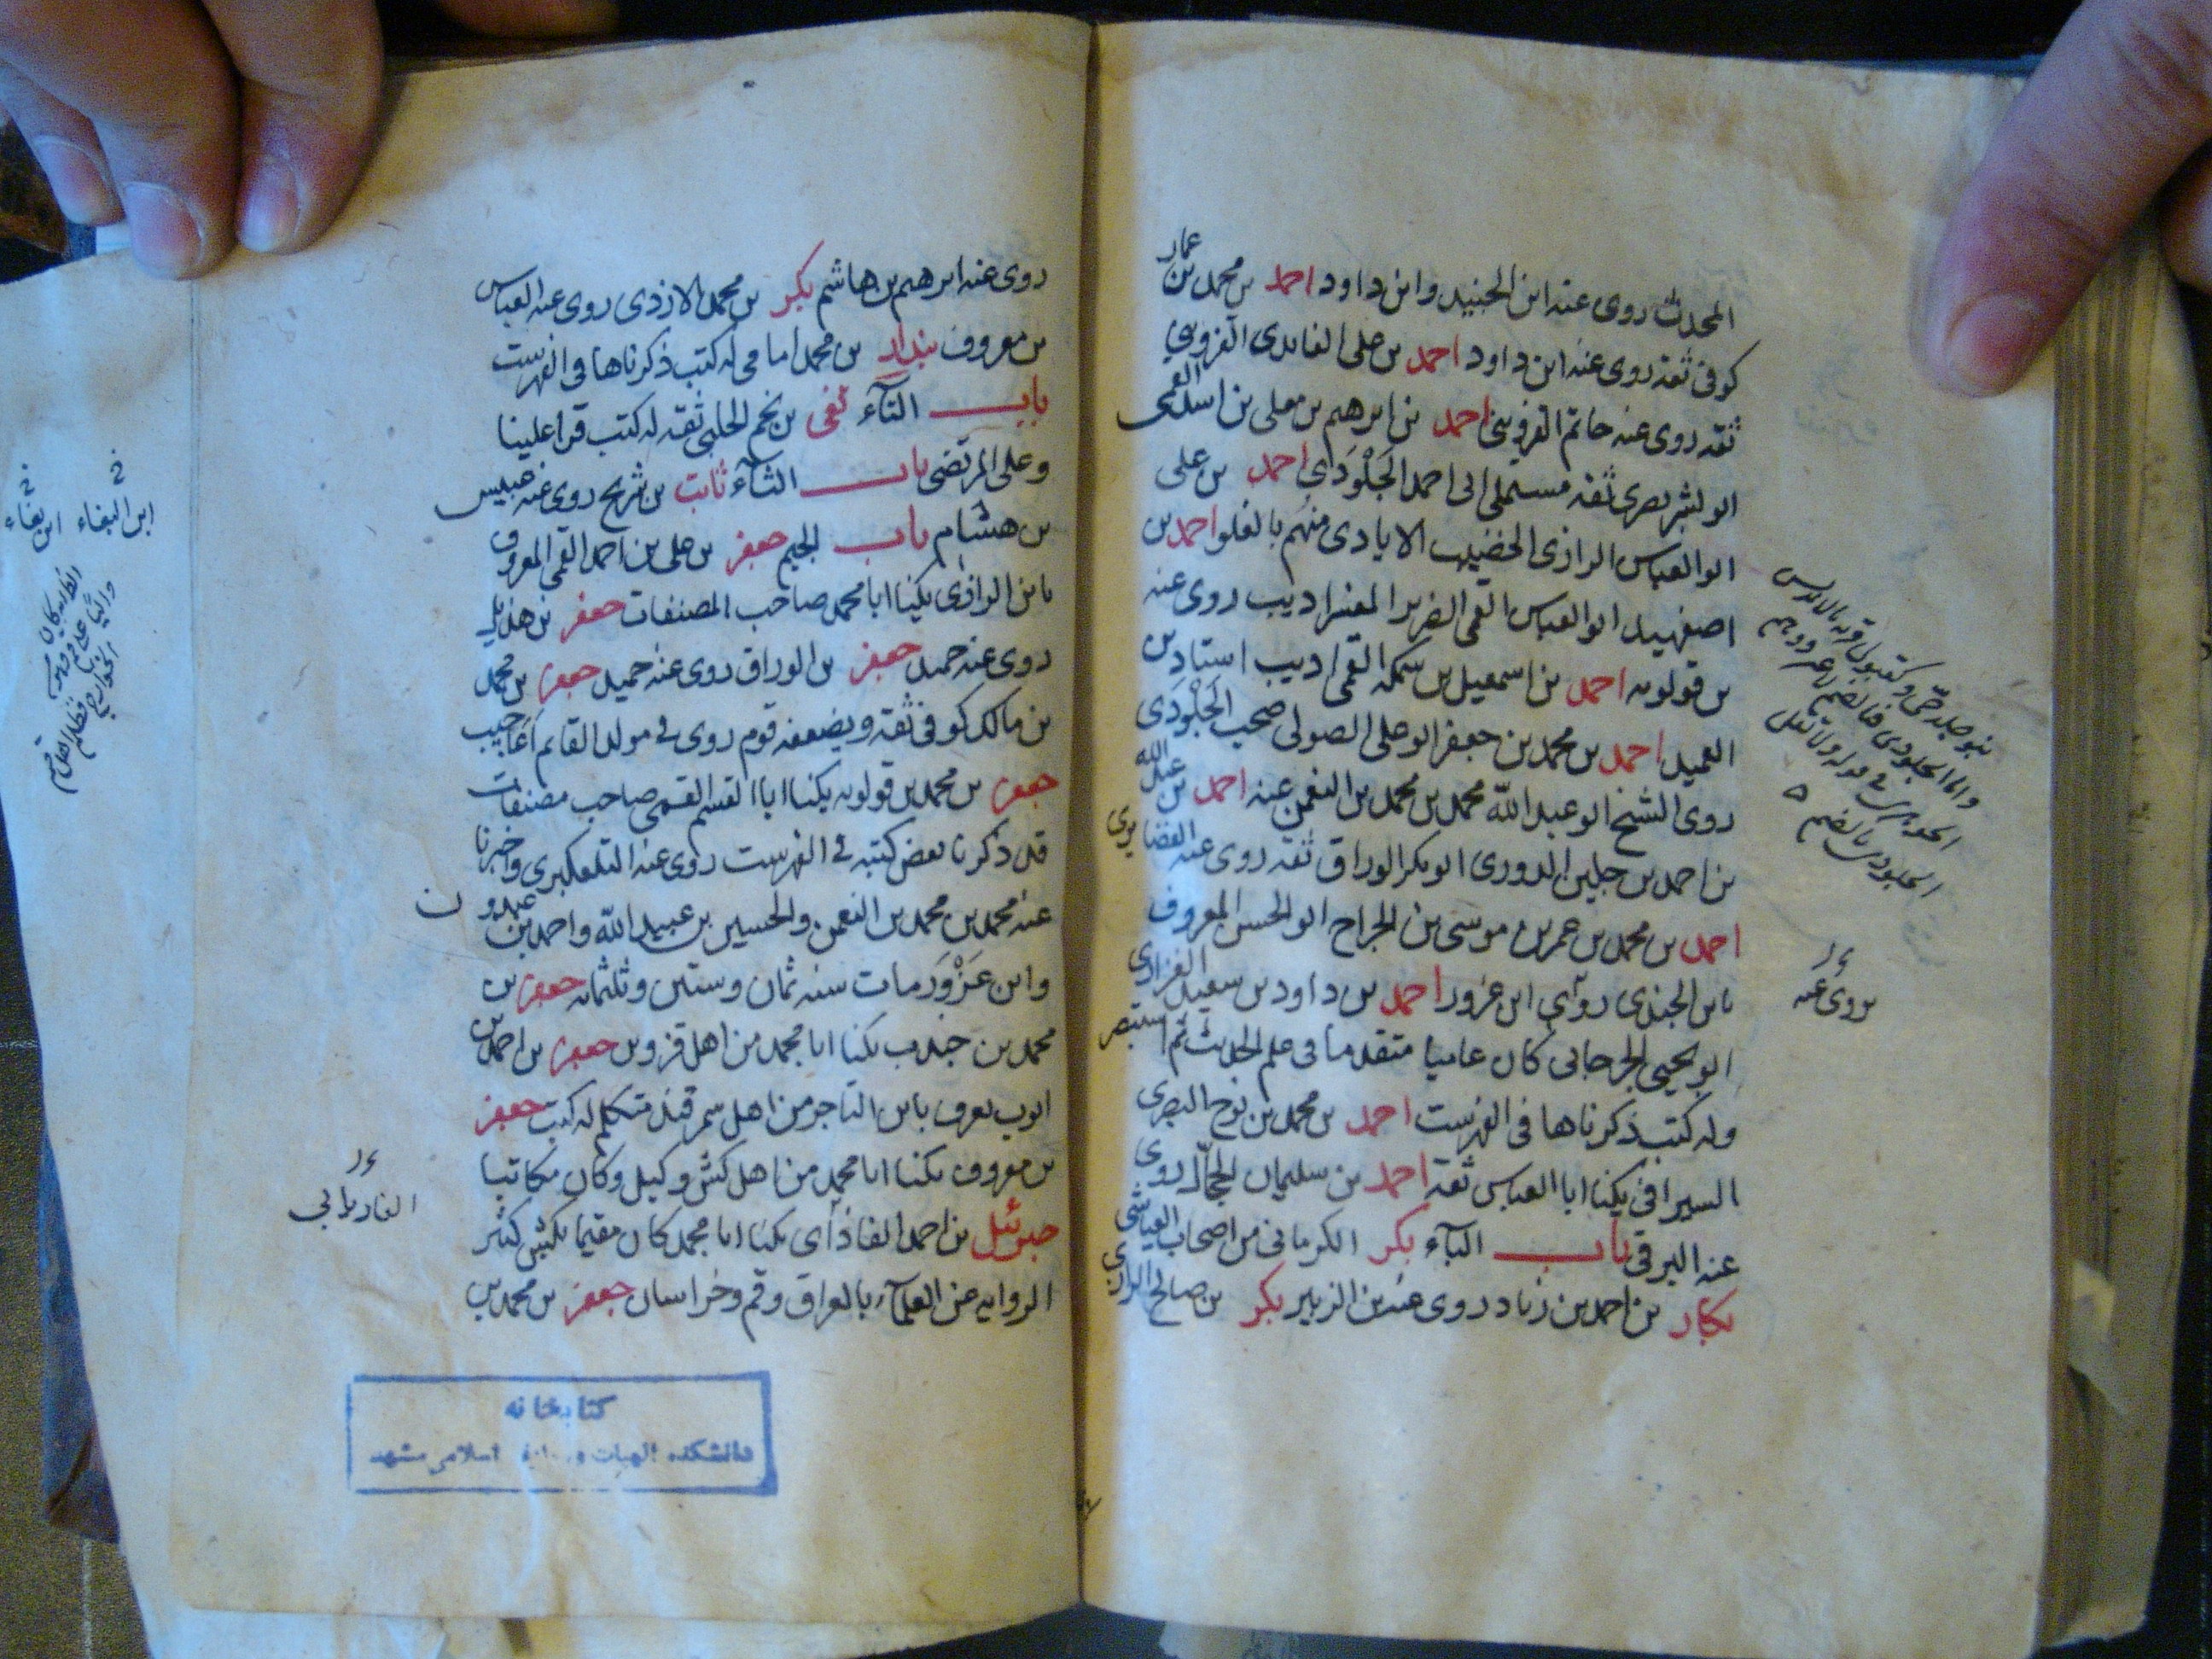 المحدث روى عنه ابن الجنيد وابن داود احمد بن محمد بن عمار
كوفى ثقة روى عنه ابن داود احمد بن على الفايدى القزوينى
ثقة روى عنه حاتم القزوينى احمد بن ابرهيم بن معلى بن اسد العمى
ابو بشر بصرى ثقة مستملى ابى احمد الجَلْوَدى احمد بن على
ابو العباس الرازى الخضيب الايادى متهم بالغلو احمد بن
اصفهبد ابو العباس القمى الضرير المفسر اديب روى عنه
بن قولويه احمد بن اسمعيل بن سمكه القمى اديب استاد بن
العميد احمد بن محمد بن جعفر ابو على الصولى صحب الجَلْوَدى
روى الشيخ ابو عبد الله محمد بن محمد بن النعمن عنه احمد بن عبد الله
بن احمد بن جلين الدورى ابو بكر الوراق ثقة روى عنه الغضايرى
احمد بن محمد بن عمر بن موسى بن الجراح ابو الحسن المعروف
بابن الجندى روى ابن عزور احمد بن داود بن سعيد الفزارى
ابو يحيى الجرجانى كان عاميا متقدما فى علم الحديث ثم استبصر
وله كتب ذكرناها فى الفهرست احمد بن محمد بن نوح البصرى
السيرافى يكنا ابا العباس ثقة احمد بن سليمان الحجال روى
عنه البرقى باب الباء بكر الكرمانى من اصحاب العياشى
بكار بن احمد بن زياد روى عنه بن الزبير بكر بن صالح الرازى
يروى عنه
روى عنه ابرهيم بن هاشم بكر بن محمد الازدى روى عنه العباس
بن معروف بندار بن محمد امامى له كتب ذكرناها فى الفهرست
باب التآء تقى بن نجم الحلبى ثقة له كتب قرا علينا
وعلى المرتضى باب الثآء ثابت بن شريح روى عنه عبيس
بن هشام باب الجيم جعفر بن على بن احمد القمى المعروف
بابن الرازى يكنا ابا محمد صاحب المصنفات جعفر بن هذيل
روى عنه حميد جعفر بن الوراق روى عنه حميد جعفر بن محمد
بن مالك كوفى ثقة ويضعفه قوم روى فى مولد القايم اعاجيب
جعفر بن محمد بن قولويه يكنا ابا القسم القمى صاحب مصنفات
قد ذكرنا بعض كتبه فى الفهرست روى عنه التلعكبرى واخبرنا
عنه محمد بن محمد بن النعمن والحسين بن عبيد الله واحمد بن عبدون
وابن عَزْوَر مات سنه ثمان وستين وثلثمائه جعفر بن
محمد بن جندب يكنا ابا محمد من اهل قزوين جعفر بن احمد بن
ايوب يعرف بابن التاجر من اهل سمرقند متكلم له كتب جعفر
بن معروف يكنا ابا محمد من اهل كش وكيل وكان مكاتبا
جبرئيل بن احمد الفاذاى يكنا ابا محمد كان مقيما بكش كثير
الروايه عن العلمآء بالعراق وقم وخراسان جعفر بن محمد بن
ابن البغاء ابن بغاء
الفاريابى
كتابخانه
دانشكده الهيات و اسلامى مشهد